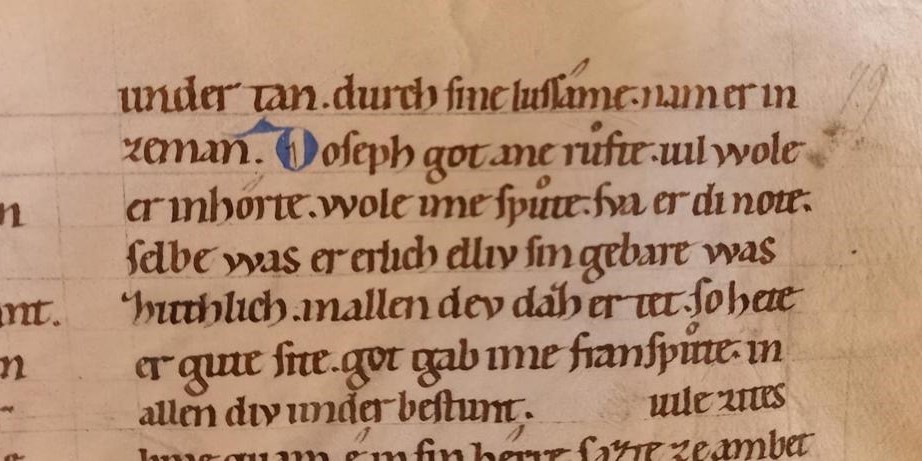 under tan. durch sine lussáme. nam er in
zeman. Ioseph got ane růfte. uil wole
n er in hórte. wole ime spůte. sva er di note.
selbe was er erlich elliv sin gebare was
nt. huthlich. in allen dev daz er tet. so hete
n er gute site. got gab ime framspůte. in
allen div under bestunt. uile zites